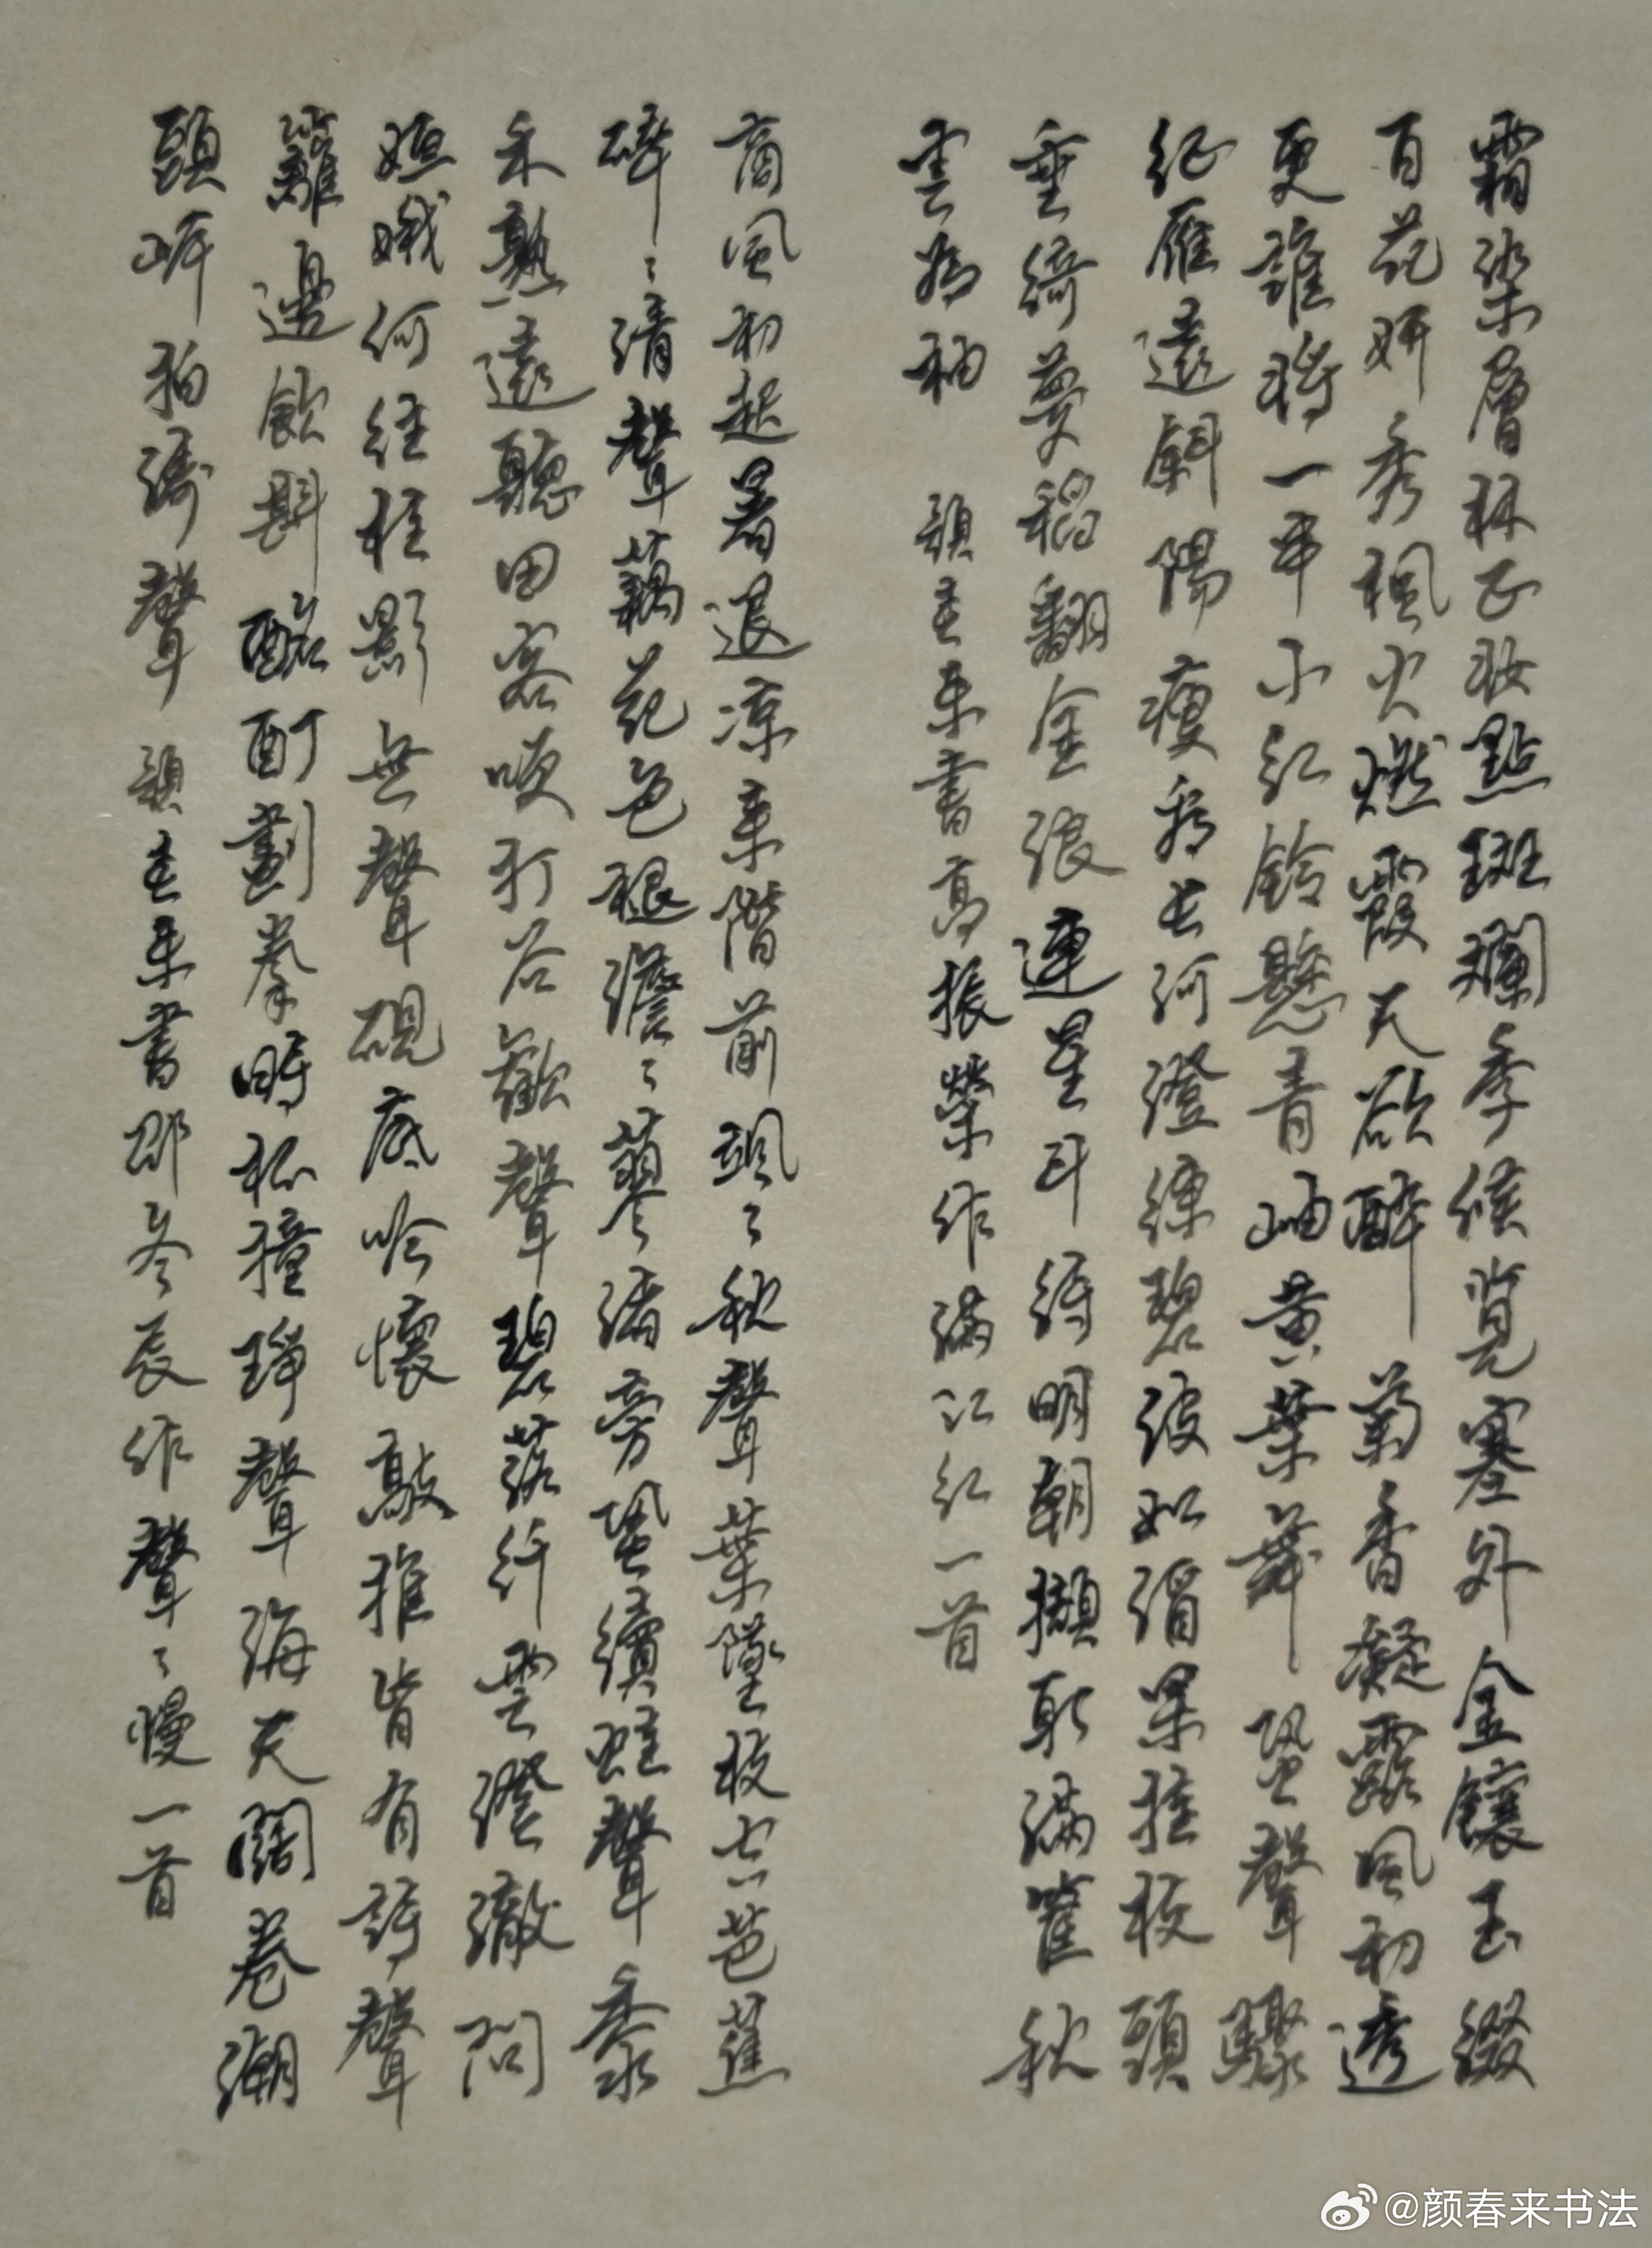 霜染層林正妝點斑斕季候覓塞外金鑲玉綴
百花妍秀楓火燃霞天欲醉菊香凝露風初透
更誰將一串小紅鈴懸青岫黃葉舞蛩聲驟
征雁遠斜陽瘦看長河澄練碧波如縐果掛枝頭
垂綺夢稻翻金浪連星斗待明朝擷取滿筐秋
雲為袖 顏春來書高振榮作滿江紅一首
商風初起暑退涼來階前颯〻秋聲葉墜枝空芭蕉
碎〻清聲藕花色褪澹〻蓼渚旁蛩續蛙聲黍
禾熟遠聽田家喚打谷歡聲碧落纖雲澄澈問
姮娥何經桂影無聲硯底吟懷敲推皆有詩聲
籬邊飲斟酩酊劃拳時杯撞琤聲海天闊卷潮
頭岸拍濤聲 顏春來書邵冬辰作聲〻慢一首
@颜春来书法